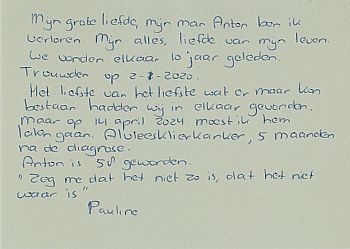 Mijn grote liefde, mijn man Anton ben ik
verloren. Mijn alles, liefde van mijn leven.
We vonden elkaar 10 jaar geleden.
Trouwden op 2-1-2020.
Het liefste van het liefste wat er maar kon
bestaan hadden wij in elkaar gevonden.
Maar op 14 april 2024 moest ik hem
laten gaan. Alvleesklierkanker, 5 maanden
na de diagnose.
Anton is 58 geworden.
"Zeg me dat het niet zo is, dat het niet
waar is"
Pauline